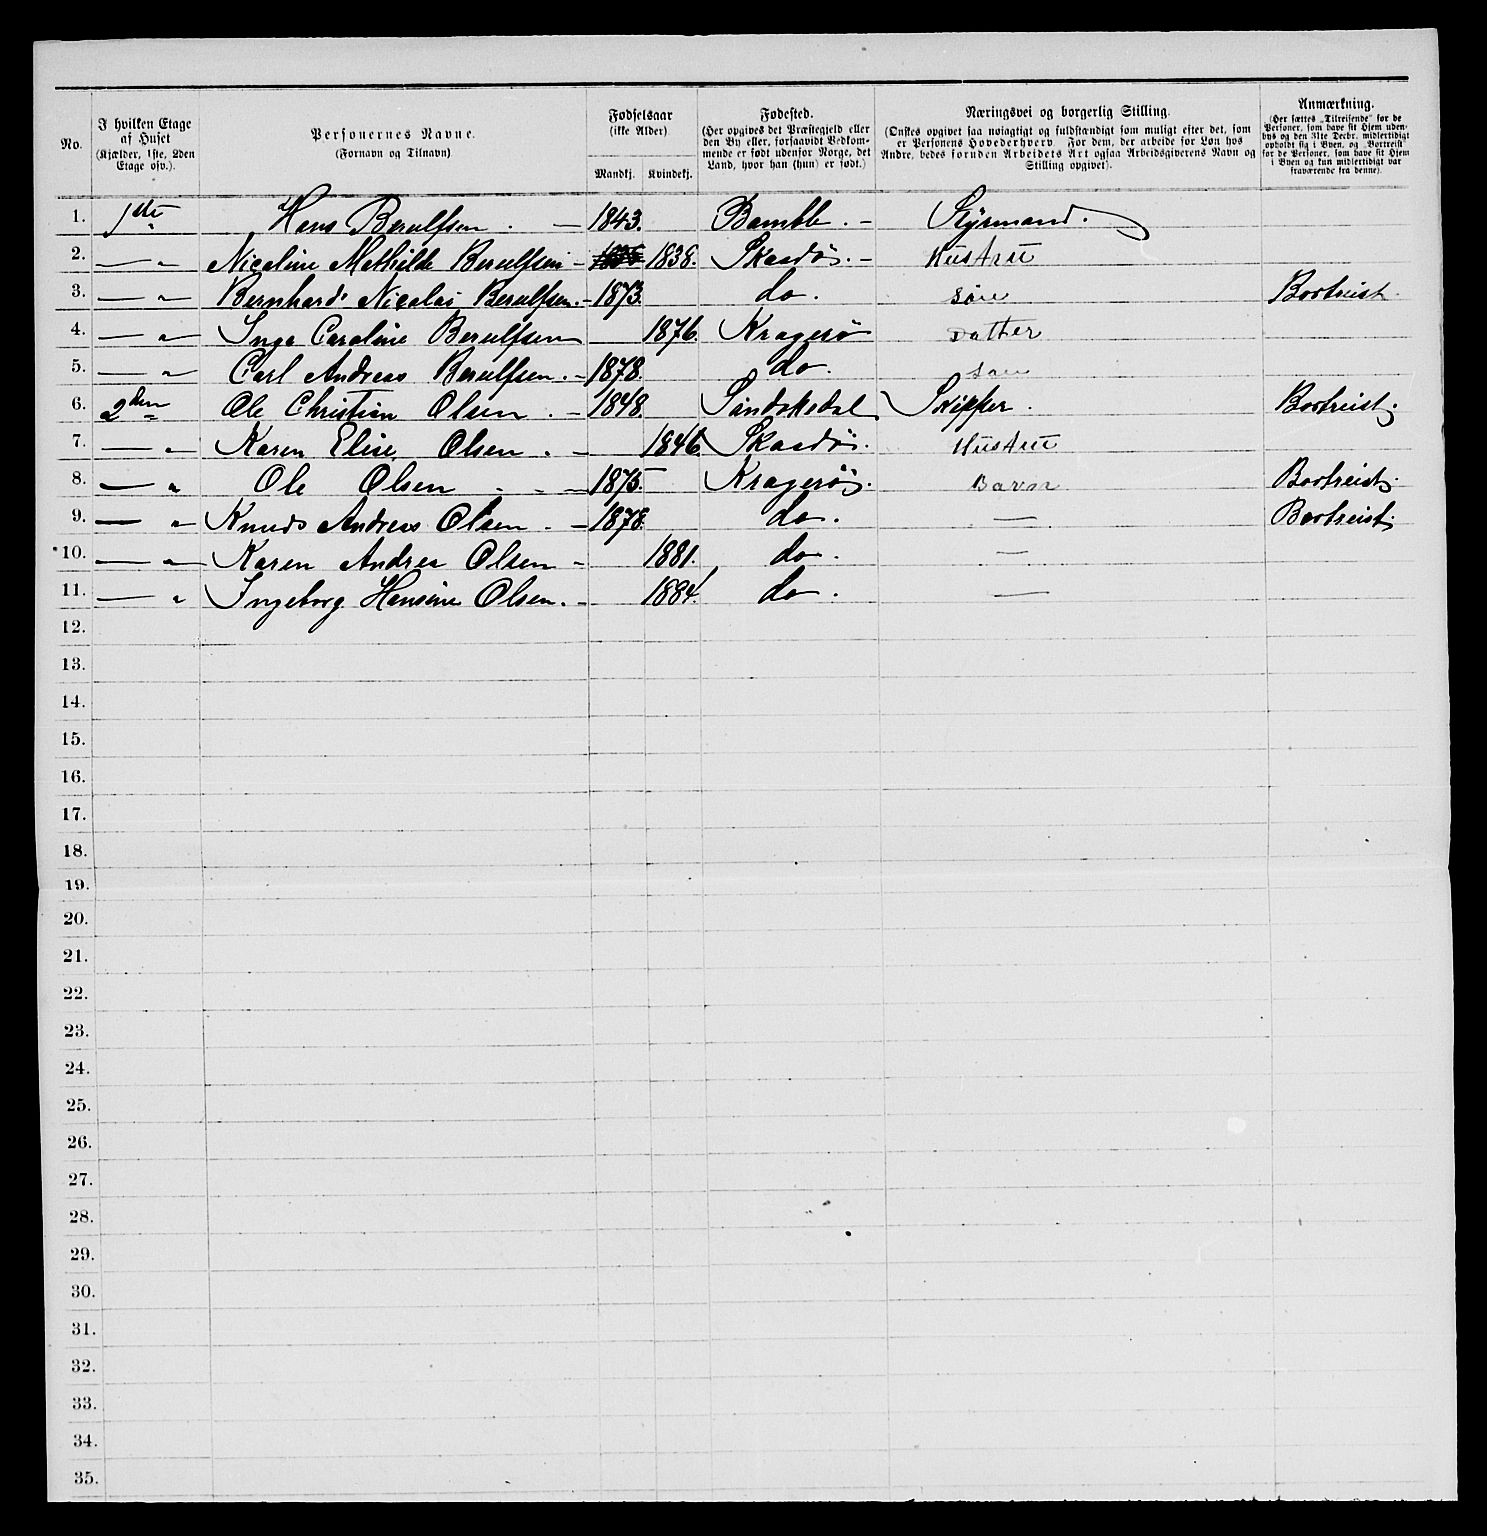 No.
I hvilken Etage af Huset (Kjælder, 1ste, 2den Etage osv.).
Personernes Navne. (Fornavn og Tilnavn)
Fødselsaar (ikke Alder). Mandkj. Kvindekj.
Fødested. (Her opgives det Præstegjeld eller den By eller, forsaavidt Vedkommende er født udenfor Norge, det Land, hvor han (hun) er født.)
Næringsvei og borgerlig Stilling. (Ønskes opgivet saa nøiagtigt og fuldstændigt som muligt efter det, som er Personens Hovederhverv. For dem, der arbeide for Løn hos Andre, bedes foruden Arbeidets Art ogsaa Arbeidsgiverens Navn og Stilling opgivet).
Anmærkning. (Her sættes „Tilreisende“ for de Personer, som have sit Hjem udenbys og den 31te Decbr. midlertidigt opholdt sig i Byen, og „Bortreist“ for de Personer, som have sit Hjem i Byen og kun midlertidigt var fraværende fra denne).
1. 1ste Hans Berulfsen. — 1843. Bamble. — Styrmand.
2. — " Nicoline Mathilde Berulfsen — 1838. Skaadø. — Hustru
3. — " Bernhard Nicolai Berulfsen. — 1873. do. Søn Bortreist.
4. — " Inga Caroline Berulfsen 1876. Kragerø Datter
5. — " Carl Andreas Berulfsen. — 1878. do. Søn
6. 2den Ole Christian Olsen. — 1848. Sandøkedal Skipper. Bortreist.
7. — " Karen Elise Olsen. — 1846 Skaadø. Hustru
8. — " Ole Olsen — 1875. Kragerø. Barn Bortreist.
9. — " Knud Andreas Olsen. — 1878. do. — Bortreist.
10. — " Karen Andrea Olsen — 1881. do. —
11. — " Ingeborg Hansine Olsen. — 1884. do. —
12.
13.
14.
15.
16.
17.
18.
19.
20.
21.
22.
23.
24.
25.
26.
27.
28.
29.
30.
31.
32.
33.
34.
35.